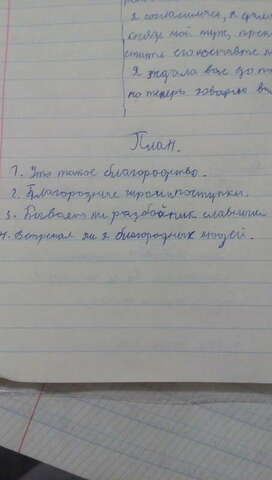 я согласилась, я
князь мой муж,

Я ждала вас до
но теперь говорю вам
План.
1. Что такое благородство.
2. Благородные герои и поступки.
3. Бывает ли разбойник славным
4. Встречал ли я благородных людей.